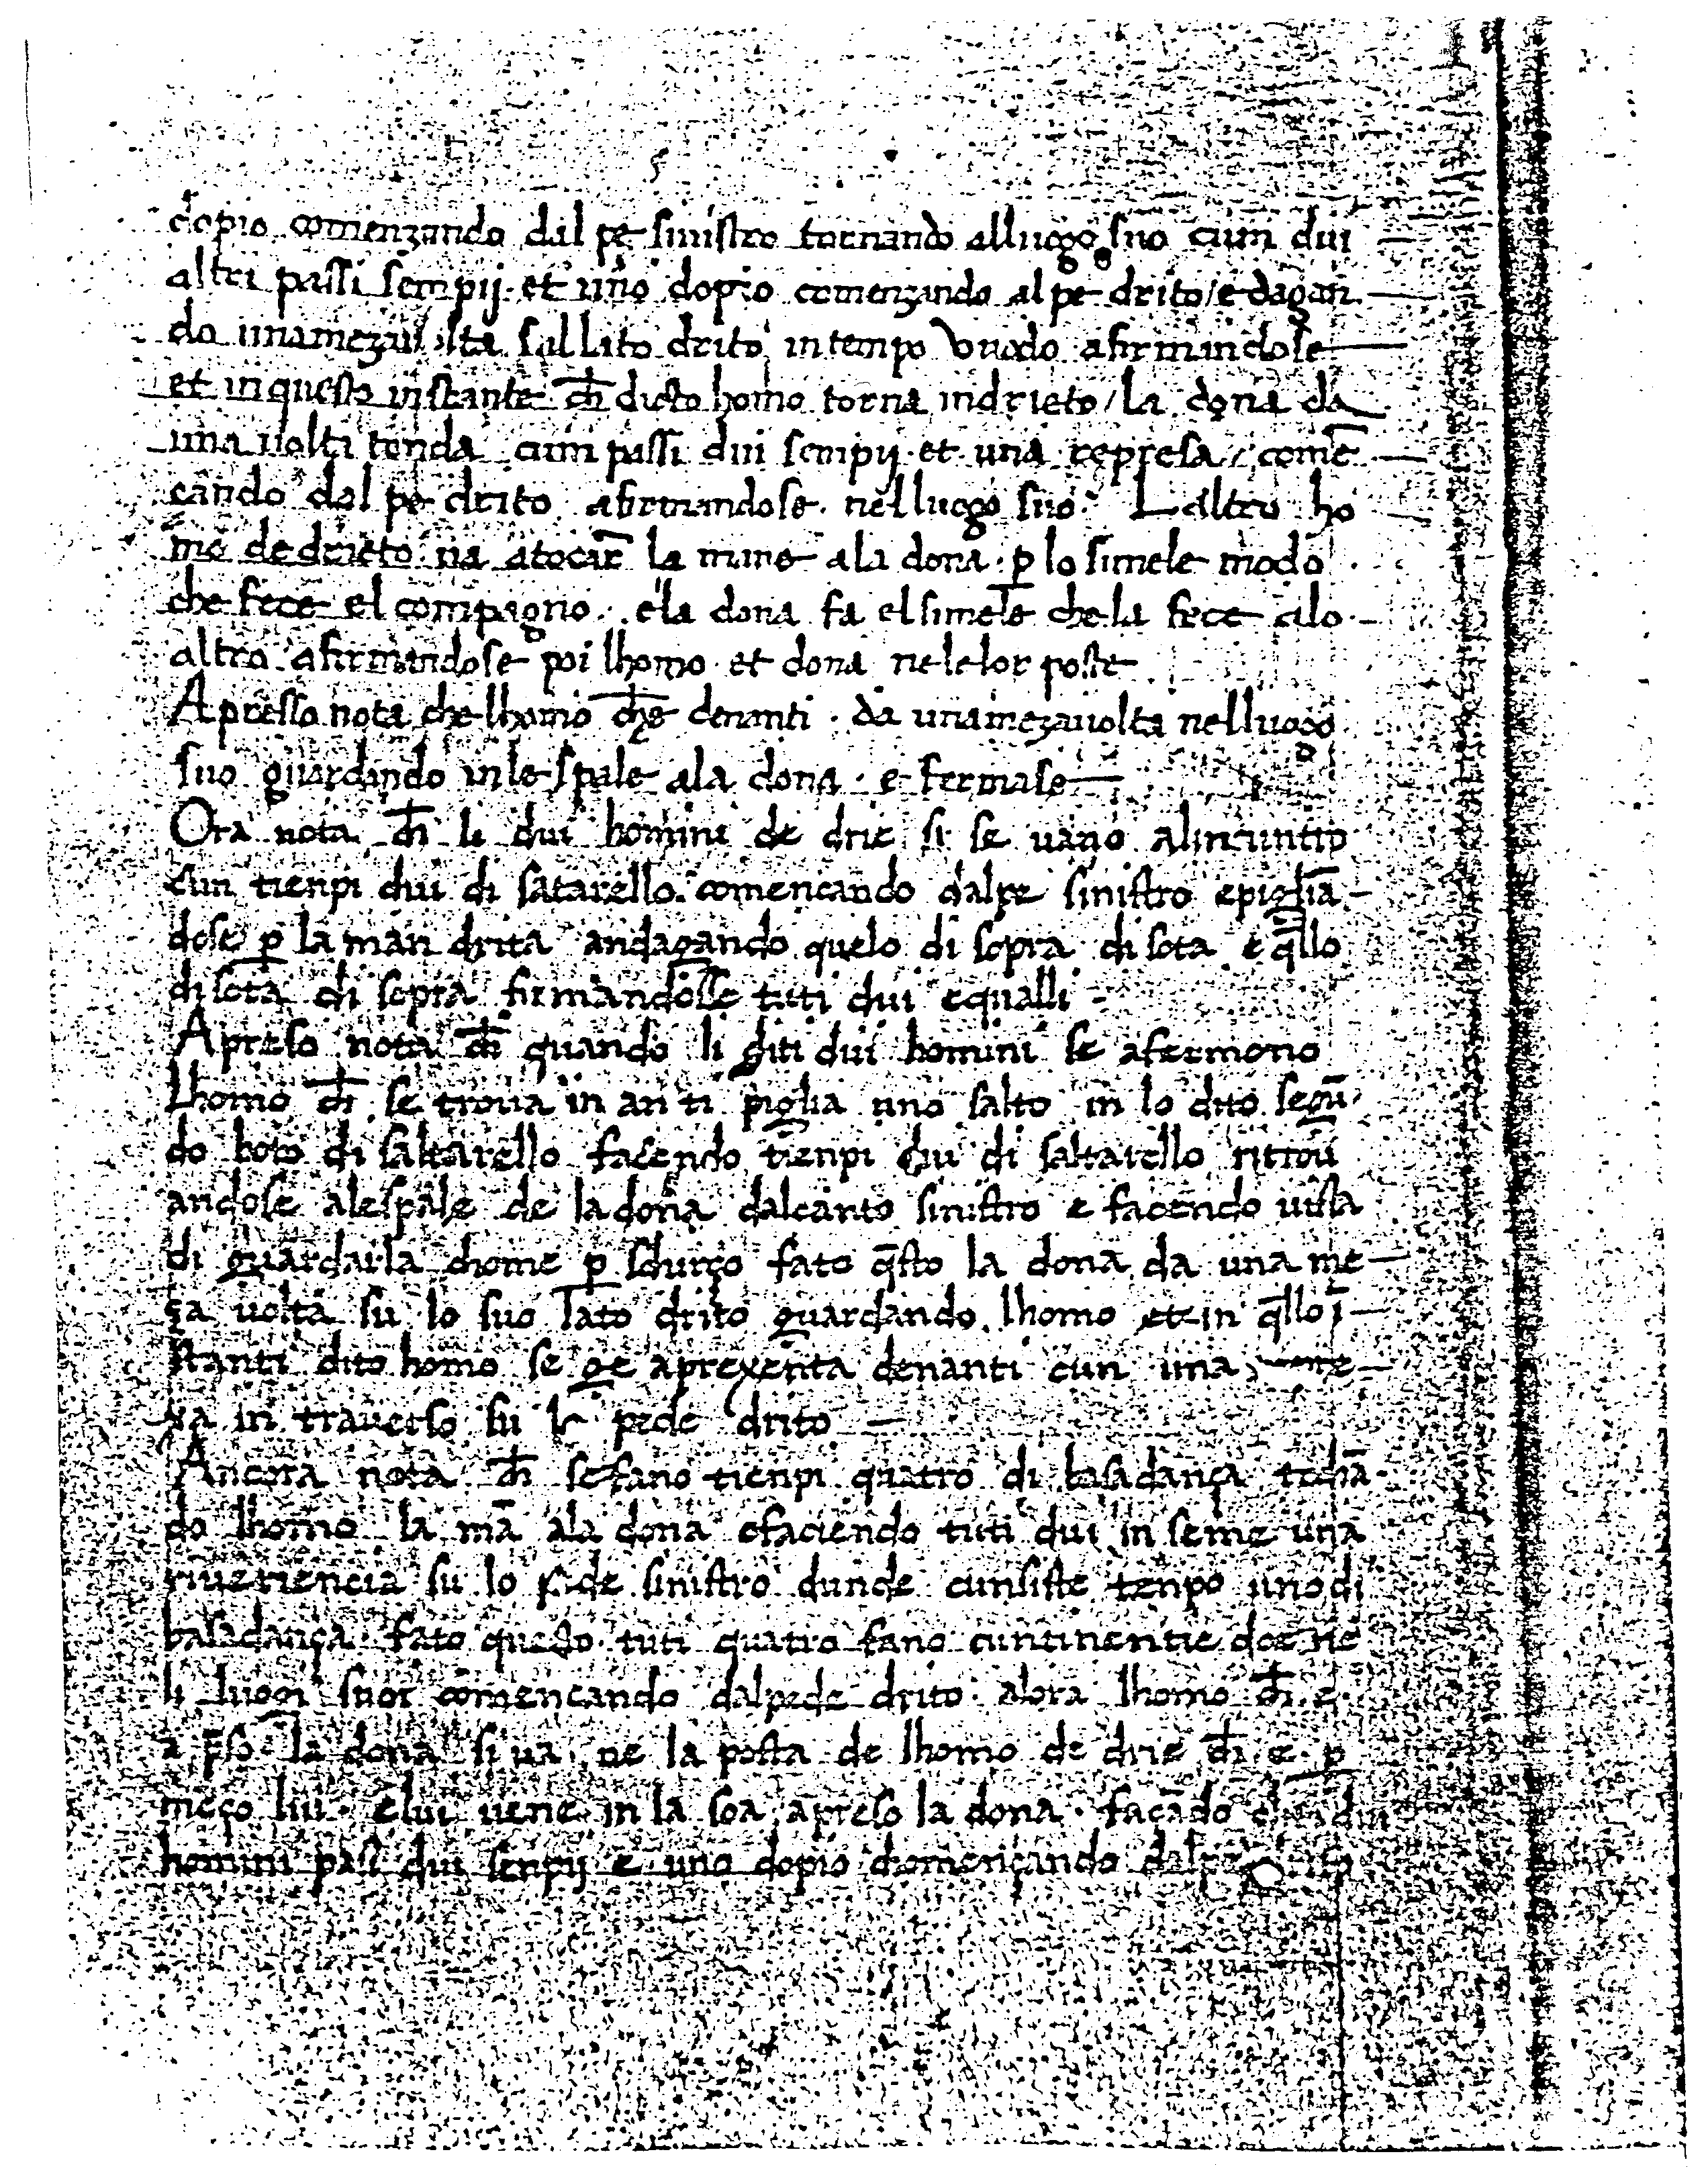 dopio comenzando dal pe sinistro tornando alluogo suo cum dui
altri passi sempij et uno dopio comenzando al pe drito / e dagan
do una meza uolta sul lato drito in tempo vuodo afirmandose
et in questo instante ch̄ dicto homo torna indrieto / la dona da
una uolta tonda cum passi dui sempij et una represa / comē
cando dal pe drito afirmandose nel luogo suo L altro ho
mo de drieto ua a tocar la mane a la dona p̱ lo simele modo
che fece el compagno e la dona fa el simele che la fece a lo
altro afirmandose poi lhomo et dona ne le lor poste
Apresso nota che lhomo che denanti da una meza uolta nel luogo
suo guardando in le spale a la dona e fermase
Ora nota ch̄ li dui homini de drie si se uano alincuntro
cun tienpi dui di satarello comencando dalpe sinistro epigliā
dose p̱ la man drita andagando quelo di sopra di sota e q̄llo
di sota di sopra firmandosse tuti dui equalli
Apreso nota ch̄ quando li diti dui homini se afermono
Lhomo ch̄ se troua in anti piglia uno salto in lo dito segū
do boto di saltarello facendo tienpi dui di saltarello ritrou
andose alespale de la dona dalcanto sinistro e facendo uista
di guardarla chome p̱ schurço fato q̄sto la dona da una me
ça uolta su lo suo lato drito guardando lhomo et in q̄llo ī
stanti dito homo se ge aprexenta denanti cun una
xa in trauerso su l pede drito
Ancora nota ch̄ se fano tienpi quatro di basadança tochā
do lhomo la mā ala dona efaciendo tuti dui in seme una
riueriencia su lo pede sinistro dunde cunsiste tenpo uno di
basadança fato questo tuti quatro fano cuntinentie doe ne
li luogi suoi comencando dalpede drito alora lhomo ch̄ e
a p̄so la dona si ua ne la posta de lhomo de drie ch̄ e p̱
meço lui elui uene in la soa apreso la dona facādo dui
homini pasi dui senpij e uno dopio chomençando dalpe